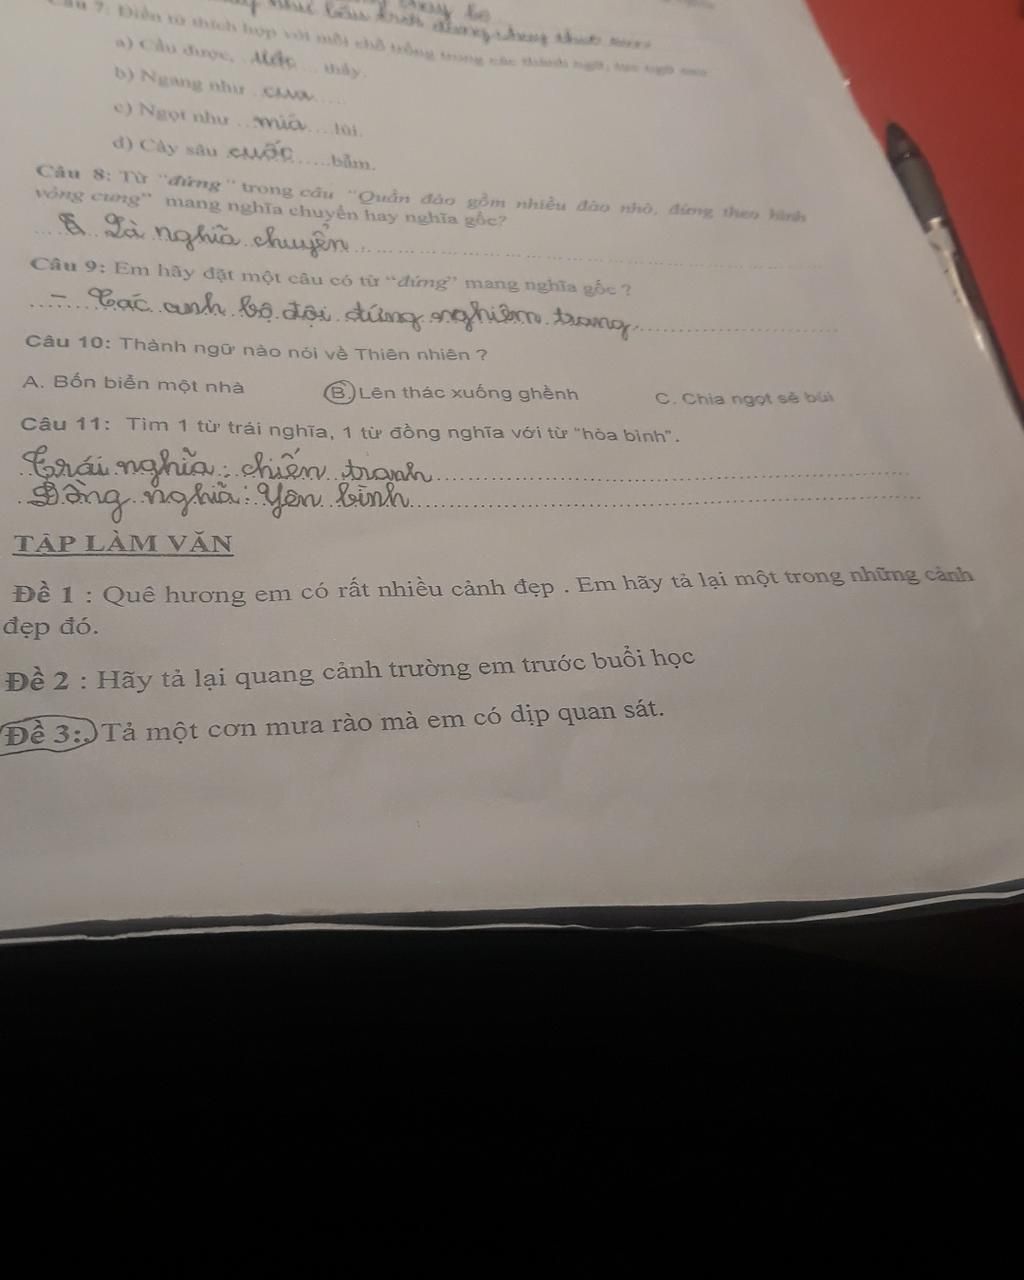 như bầu trời
Câu 7: Điền từ thích hợp với mỗi chỗ trống trong các thành ngữ, tục ngữ sau
a) Cầu được, ..ước.... thấy.
b) Ngang như ..cua.....
c) Ngọt như ...mía....lùi.
d) Cày sâu .cuốc.....bẫm.
Câu 8: Từ "đứng" trong câu "Quần đảo gồm nhiều đảo nhỏ, đứng theo hình
vòng cung" mang nghĩa chuyển hay nghĩa gốc?
Là nghĩa chuyển
Câu 9: Em hãy đặt một câu có từ "đứng" mang nghĩa gốc ?
- Các anh bộ đội đứng nghiêm trang.
Câu 10: Thành ngữ nào nói về Thiên nhiên ?
A. Bốn biển một nhà B. Lên thác xuống ghềnh C. Chia ngọt sẻ bùi
Câu 11: Tìm 1 từ trái nghĩa, 1 từ đồng nghĩa với từ "hòa bình".
Trái nghĩa: chiến tranh
Đồng nghĩa: Yên bình
TẬP LÀM VĂN
Đề 1 : Quê hương em có rất nhiều cảnh đẹp . Em hãy tả lại một trong những cảnh
đẹp đó.
Đề 2 : Hãy tả lại quang cảnh trường em trước buổi học
Đề 3: Tả một cơn mưa rào mà em có dịp quan sát.